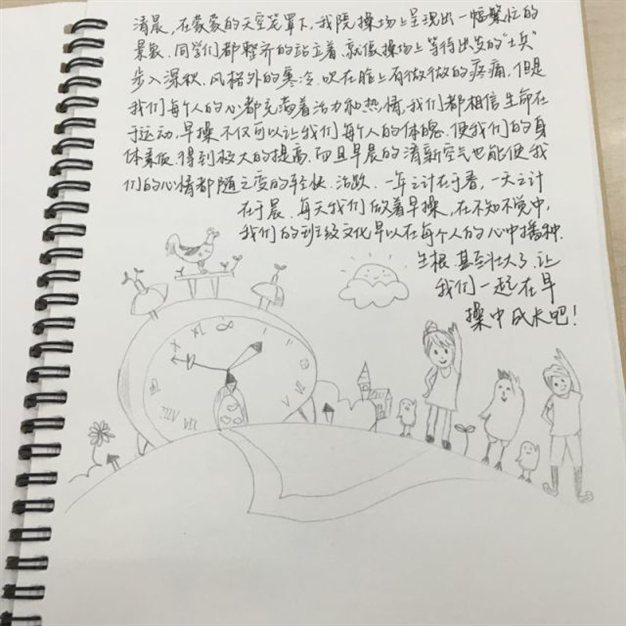 清晨，在蒙蒙的天空笼罩下，我院操场上呈现出一幅繁忙的
景象。同学们都整齐的站立着，就像操场上等待出发的"士兵"
步入深秋，风格外的寒冷，吹在脸上有微微的疼痛，但是
我们每个人的心都充满着活力和热情，我们都相信生命在
于运动，早操不仅可以让我们每个人的体魄，使我们的身
体素质得到极大的提高，而且早晨的清新空气也能使我
们的心情都随之变的轻快、活跃。一年之计在于春，一天之计
在于晨。每天我们做着早操，在不知不觉中，
我们的班级文化早以在每个人的心中播种，
生根甚至壮大了，让
我们一起在早
操中成长吧！